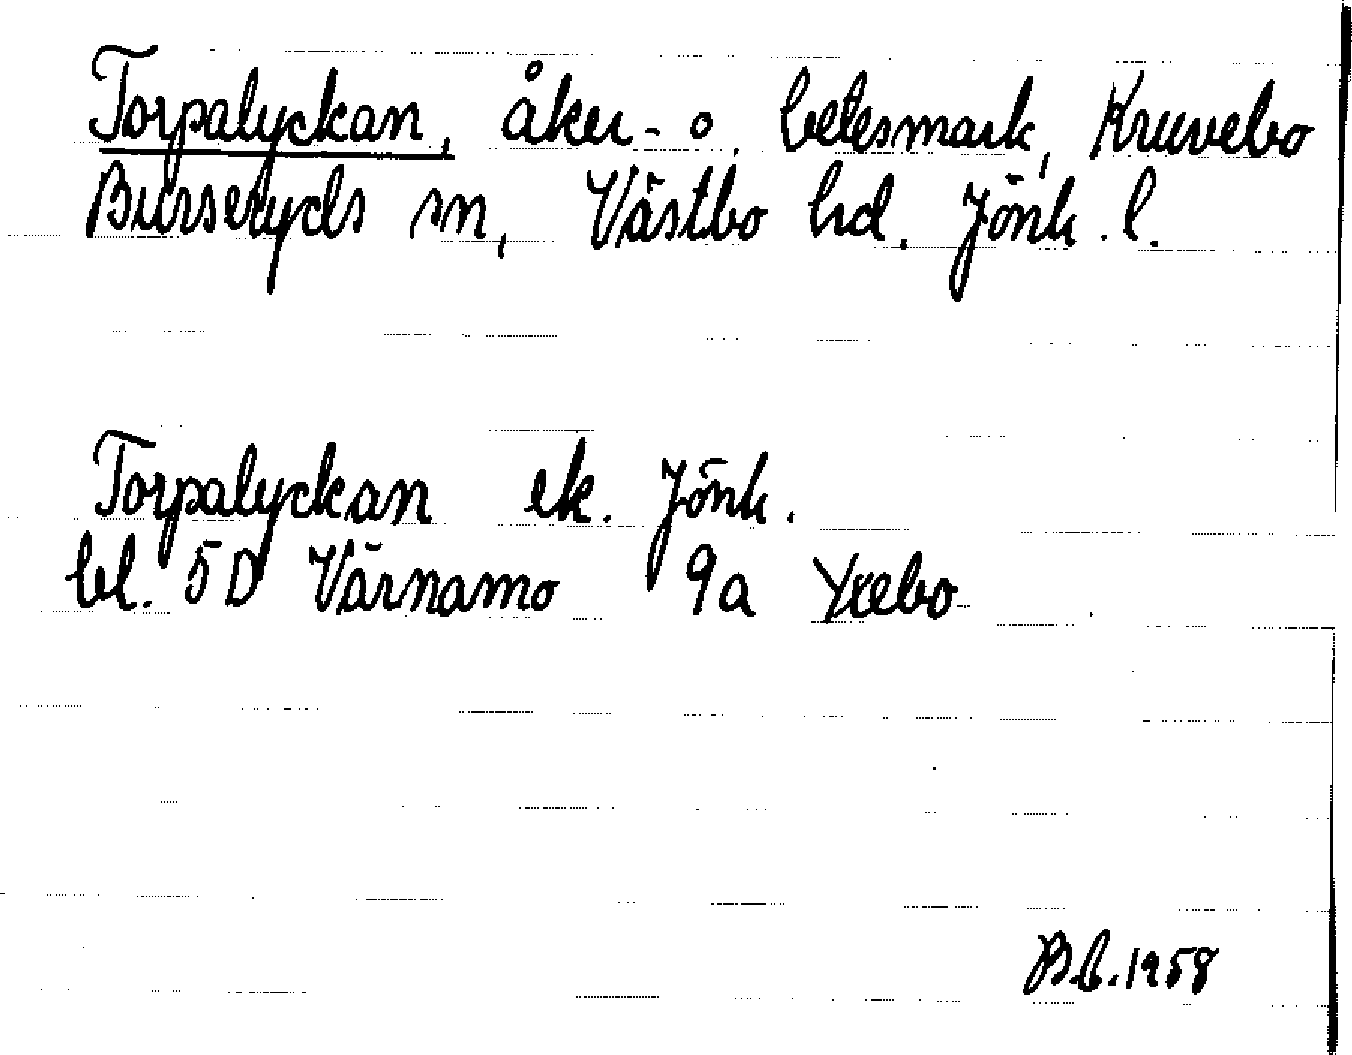 Torpalyckan, åker- o. betesmark, Kruvebo
Burseryds sn, Västbo hd. Jönk. l.
Torpalyckan ek. Jönk.
bl. 5D Värnamo 9a Yxebo
B.b. 1958